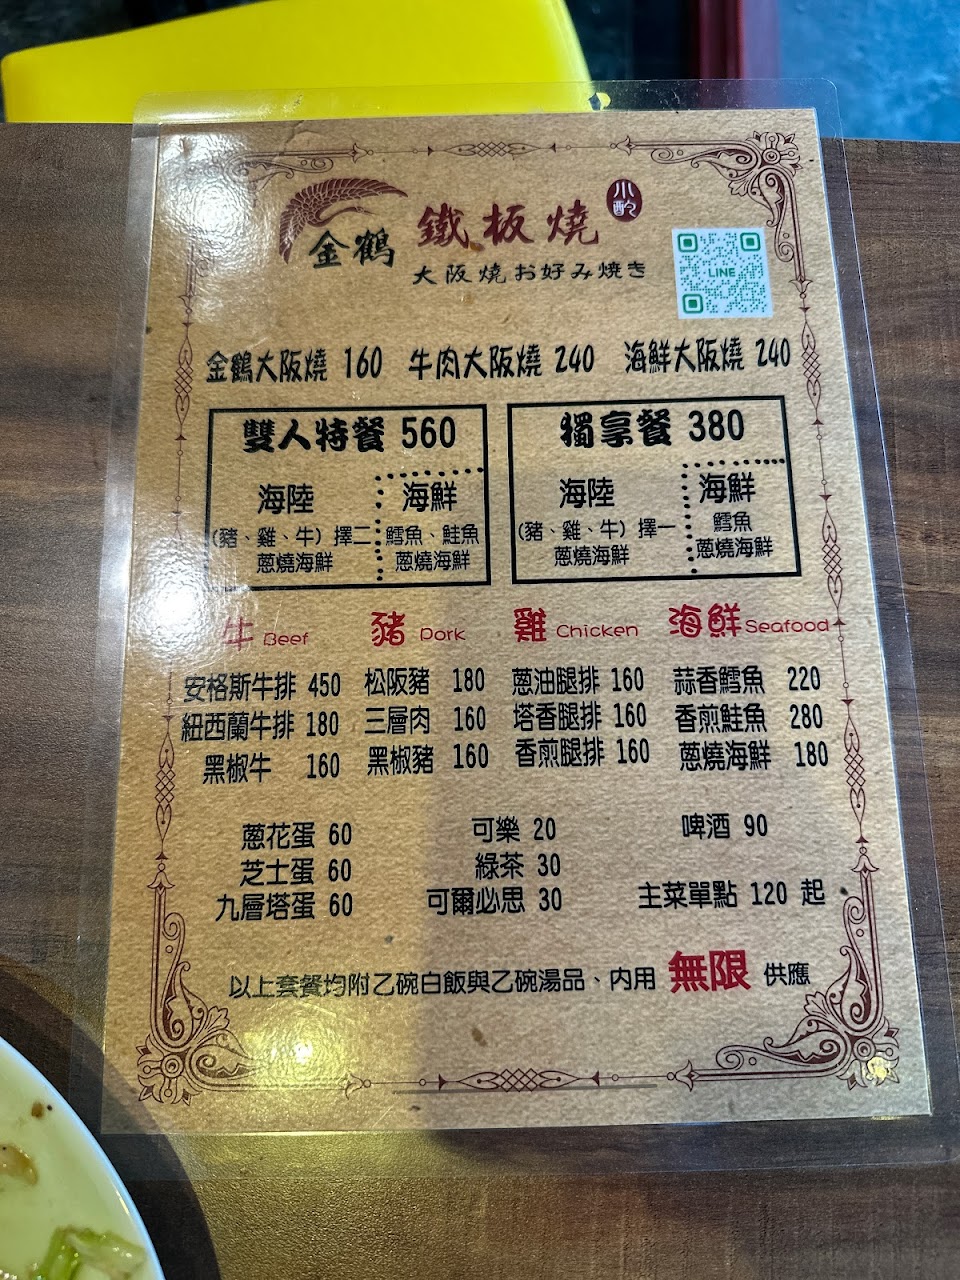 金鶴 鐵板燒 小酌
大阪燒お好み焼き
LINE
金鶴大阪燒 160 牛肉大阪燒 240 海鮮大阪燒 240
雙人特餐 560
海陸 海鮮
(豬、雞、牛) 擇二 鱈魚、鮭魚
蔥燒海鮮 蔥燒海鮮
獨享餐 380
海陸 海鮮
(豬、雞、牛) 擇一 鱈魚
蔥燒海鮮 蔥燒海鮮
牛 Beef 豬 Pork 雞 Chicken 海鮮 Seafood
安格斯牛排 450 松阪豬 180 蔥油腿排 160 蒜香鱈魚 220
紐西蘭牛排 180 三層肉 160 塔香腿排 160 香煎鮭魚 280
黑椒牛 160 黑椒豬 160 香煎腿排 160 蔥燒海鮮 180
蔥花蛋 60 可樂 20 啤酒 90
芝士蛋 60 綠茶 30
九層塔蛋 60 可爾必思 30 主菜單點 120 起
以上套餐均附乙碗白飯與乙碗湯品、內用 無限 供應